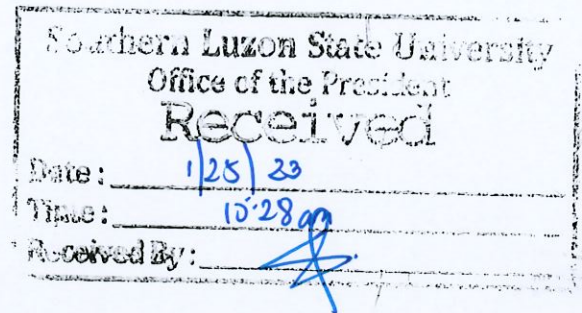 Southern Luzon State University
Office of the President
Received
Date: 1/25/23
Time: 10:28 am
Received By: